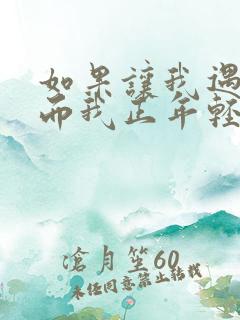 如果讓我遇
而我正年輕
滄月笙60
未经同意禁止转载